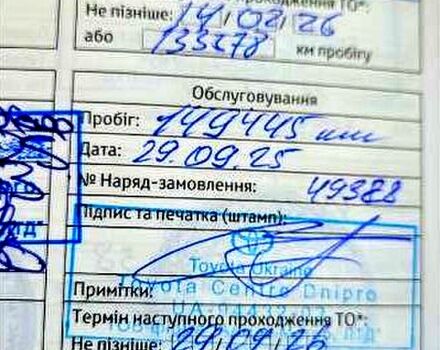 проходження ТО*:
Не пізніше: 14/02/26
або 133278 км пробігу
Обслуговування
Пробіг: 149445 км
Дата: 29.09.25
№ Наряд-замовлення: 49388
Підпис та печатка (штамп):
Toyota Ukraine
Toyota Centre Dnipro
Примітки:
Термін наступного проходження ТО*:
Не пізніше: 29/09/26